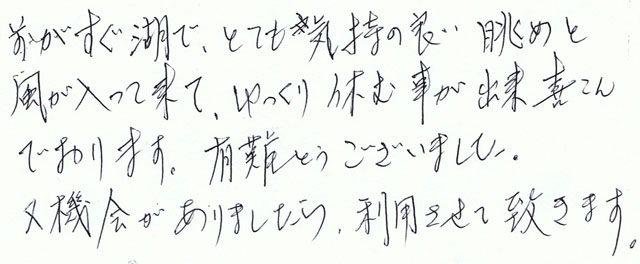 前がすぐ湖で、とても気持の良い眺めと
風が入って来て、ゆっくり休む事が出来喜こん
でおります。有難とうございました。
又機会がありましたら、利用させて致きます。